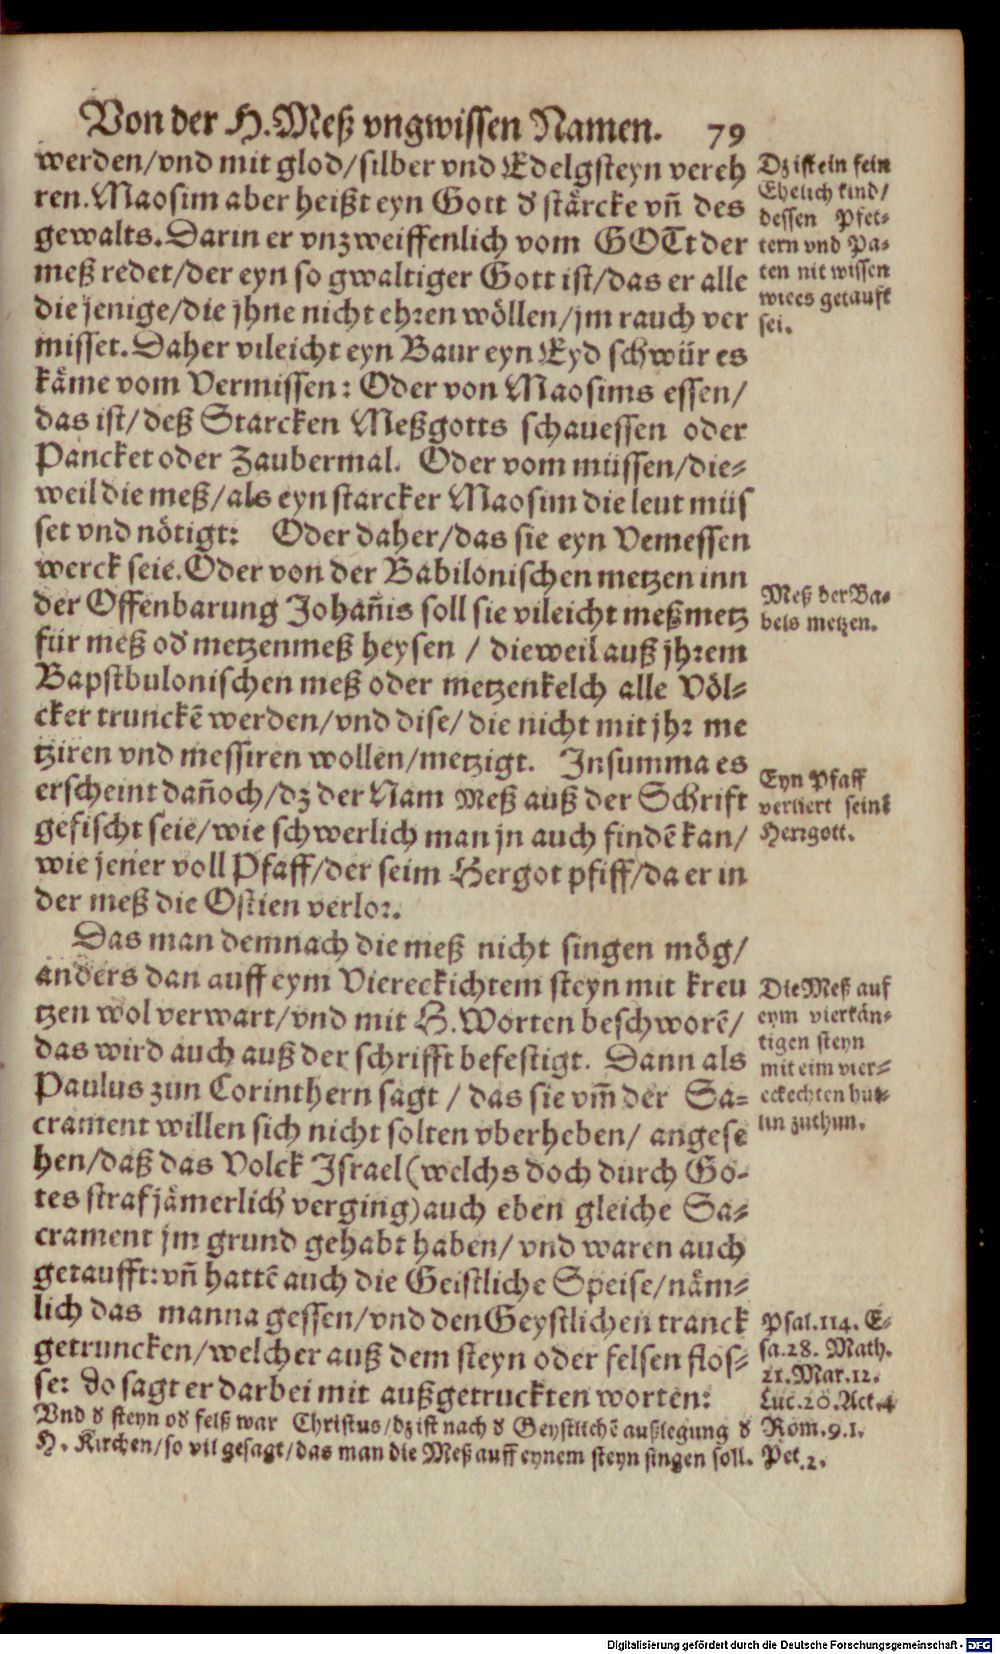 Von der H. Meß vngwissen Namen. 79
werden/vnd mit glod/silber vnd Edelgsteyn vereh
ren. Maosim aber heißt eyn Gott d̕ stärcke vñ des
gewalts. Darin er vnzweiffenlich vom GOTt der
meß redet/der eyn so gwaltiger Gott ist/das er alle
die jenige/die jhne nicht ehren wöllen/jm rauch ver
misset. Daher vileicht eyn Baur eyn Eyd schwür es
käme vom Vermissen: Oder von Maosims essen/
das ist/deß Starcken Meßgotts schauessen oder
Pancket oder Zaubermal. Oder vom müssen/die-
weil die meß/als eyn starcker Maosim die leut müs
set vnd nötigt: Oder daher/das sie eyn Vemessen
werck seie. Oder von der Babilonischen metzen inn
der Offenbarung Johañis soll sie vileicht meßmetz
für meß od̕ metzenmeß heysen / dieweil auß jhrem
Bapstbulonischen meß oder metzenkelch alle Völ-
cker trunckē werden/vnd dise/die nicht mit jhr me
tziren vnd messiren wollen/metzigt. Insumma es
erscheint dañoch/dz der Nam Meß auß der Schrift
gefischt seie/wie schwerlich man jn auch findē kan/
wie jener voll Pfaff/der seim Hergot pfiff/da er in
der meß die Ostien verlor.
Das man demnach die meß nicht singen mög/
anders dan auff eym Viereckichtem steyn mit kreu
tzen wol verwart/vnd mit H. Worten beschworē/
das wird auch auß der schrifft befestigt. Dann als
Paulus zun Corinthern sagt / das sie vm̄ der Sa-
crament willen sich nicht solten vberheben/ angese
hen/daß das Volck Israel (welchs doch durch Go-
tes straf jämerlich verging) auch eben gleiche Sa-
crament jm grund gehabt haben/ vnd waren auch
getaufft: vñ hattē auch die Geistliche Speise/näm-
lich das manna gessen/vnd den Geystlichen tranck
getruncken/welcher auß dem steyn oder felsen flos-
se: do sagt er darbei mit außgetruckten worten:
Vnd d̕ steyn od̕ felß war Christus/dz ist nach d̕ Geystlichē außlegung d̕
H. Kirchen/so vil gesagt/das man die Meß auff eynem steyn singen soll.
Dz ist ein fein
Ehelich kind/
dessen Pfet-
tern vnd Pa-
ten nit wissen
wie es getauft
sei.
Meß der Ba-
bels metzen.
Eyn Pfaff
verliert seinē
Herrgott.
Die Meß auf
eym vierkän-
tigen steyn
mit eim vier-
eckechten hüt-
lin zuthun.
Psal. 114. E-
sa. 28. Math.
21. Mar. 12.
Luc. 20. Act. 4
Rom. 9. 1.
Pet. 2.
Digitalisierung gefördert durch die Deutsche Forschungsgemeinschaft - DFG